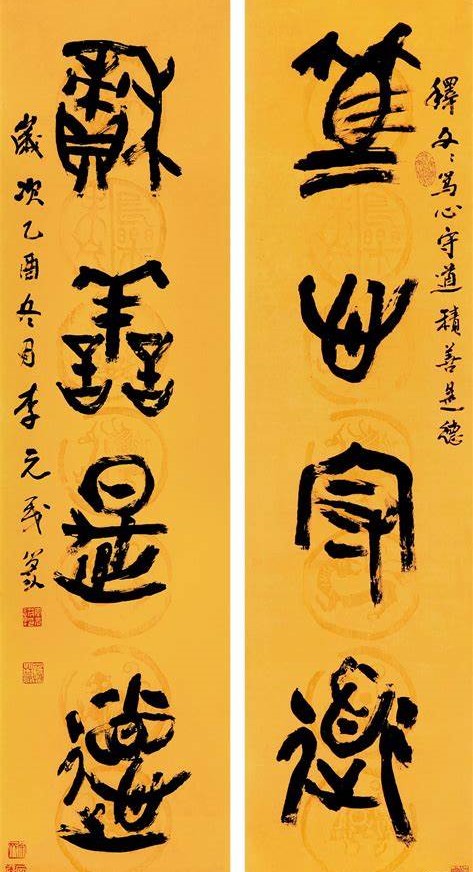 釋文：篤心守道積善是德
篤心守道
積善是德
歲次乙酉冬月李元茂篆